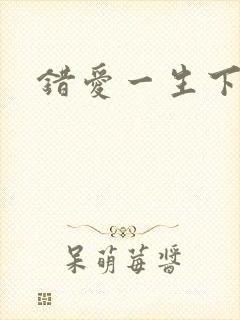 錯愛一生下
呆萌莓醬